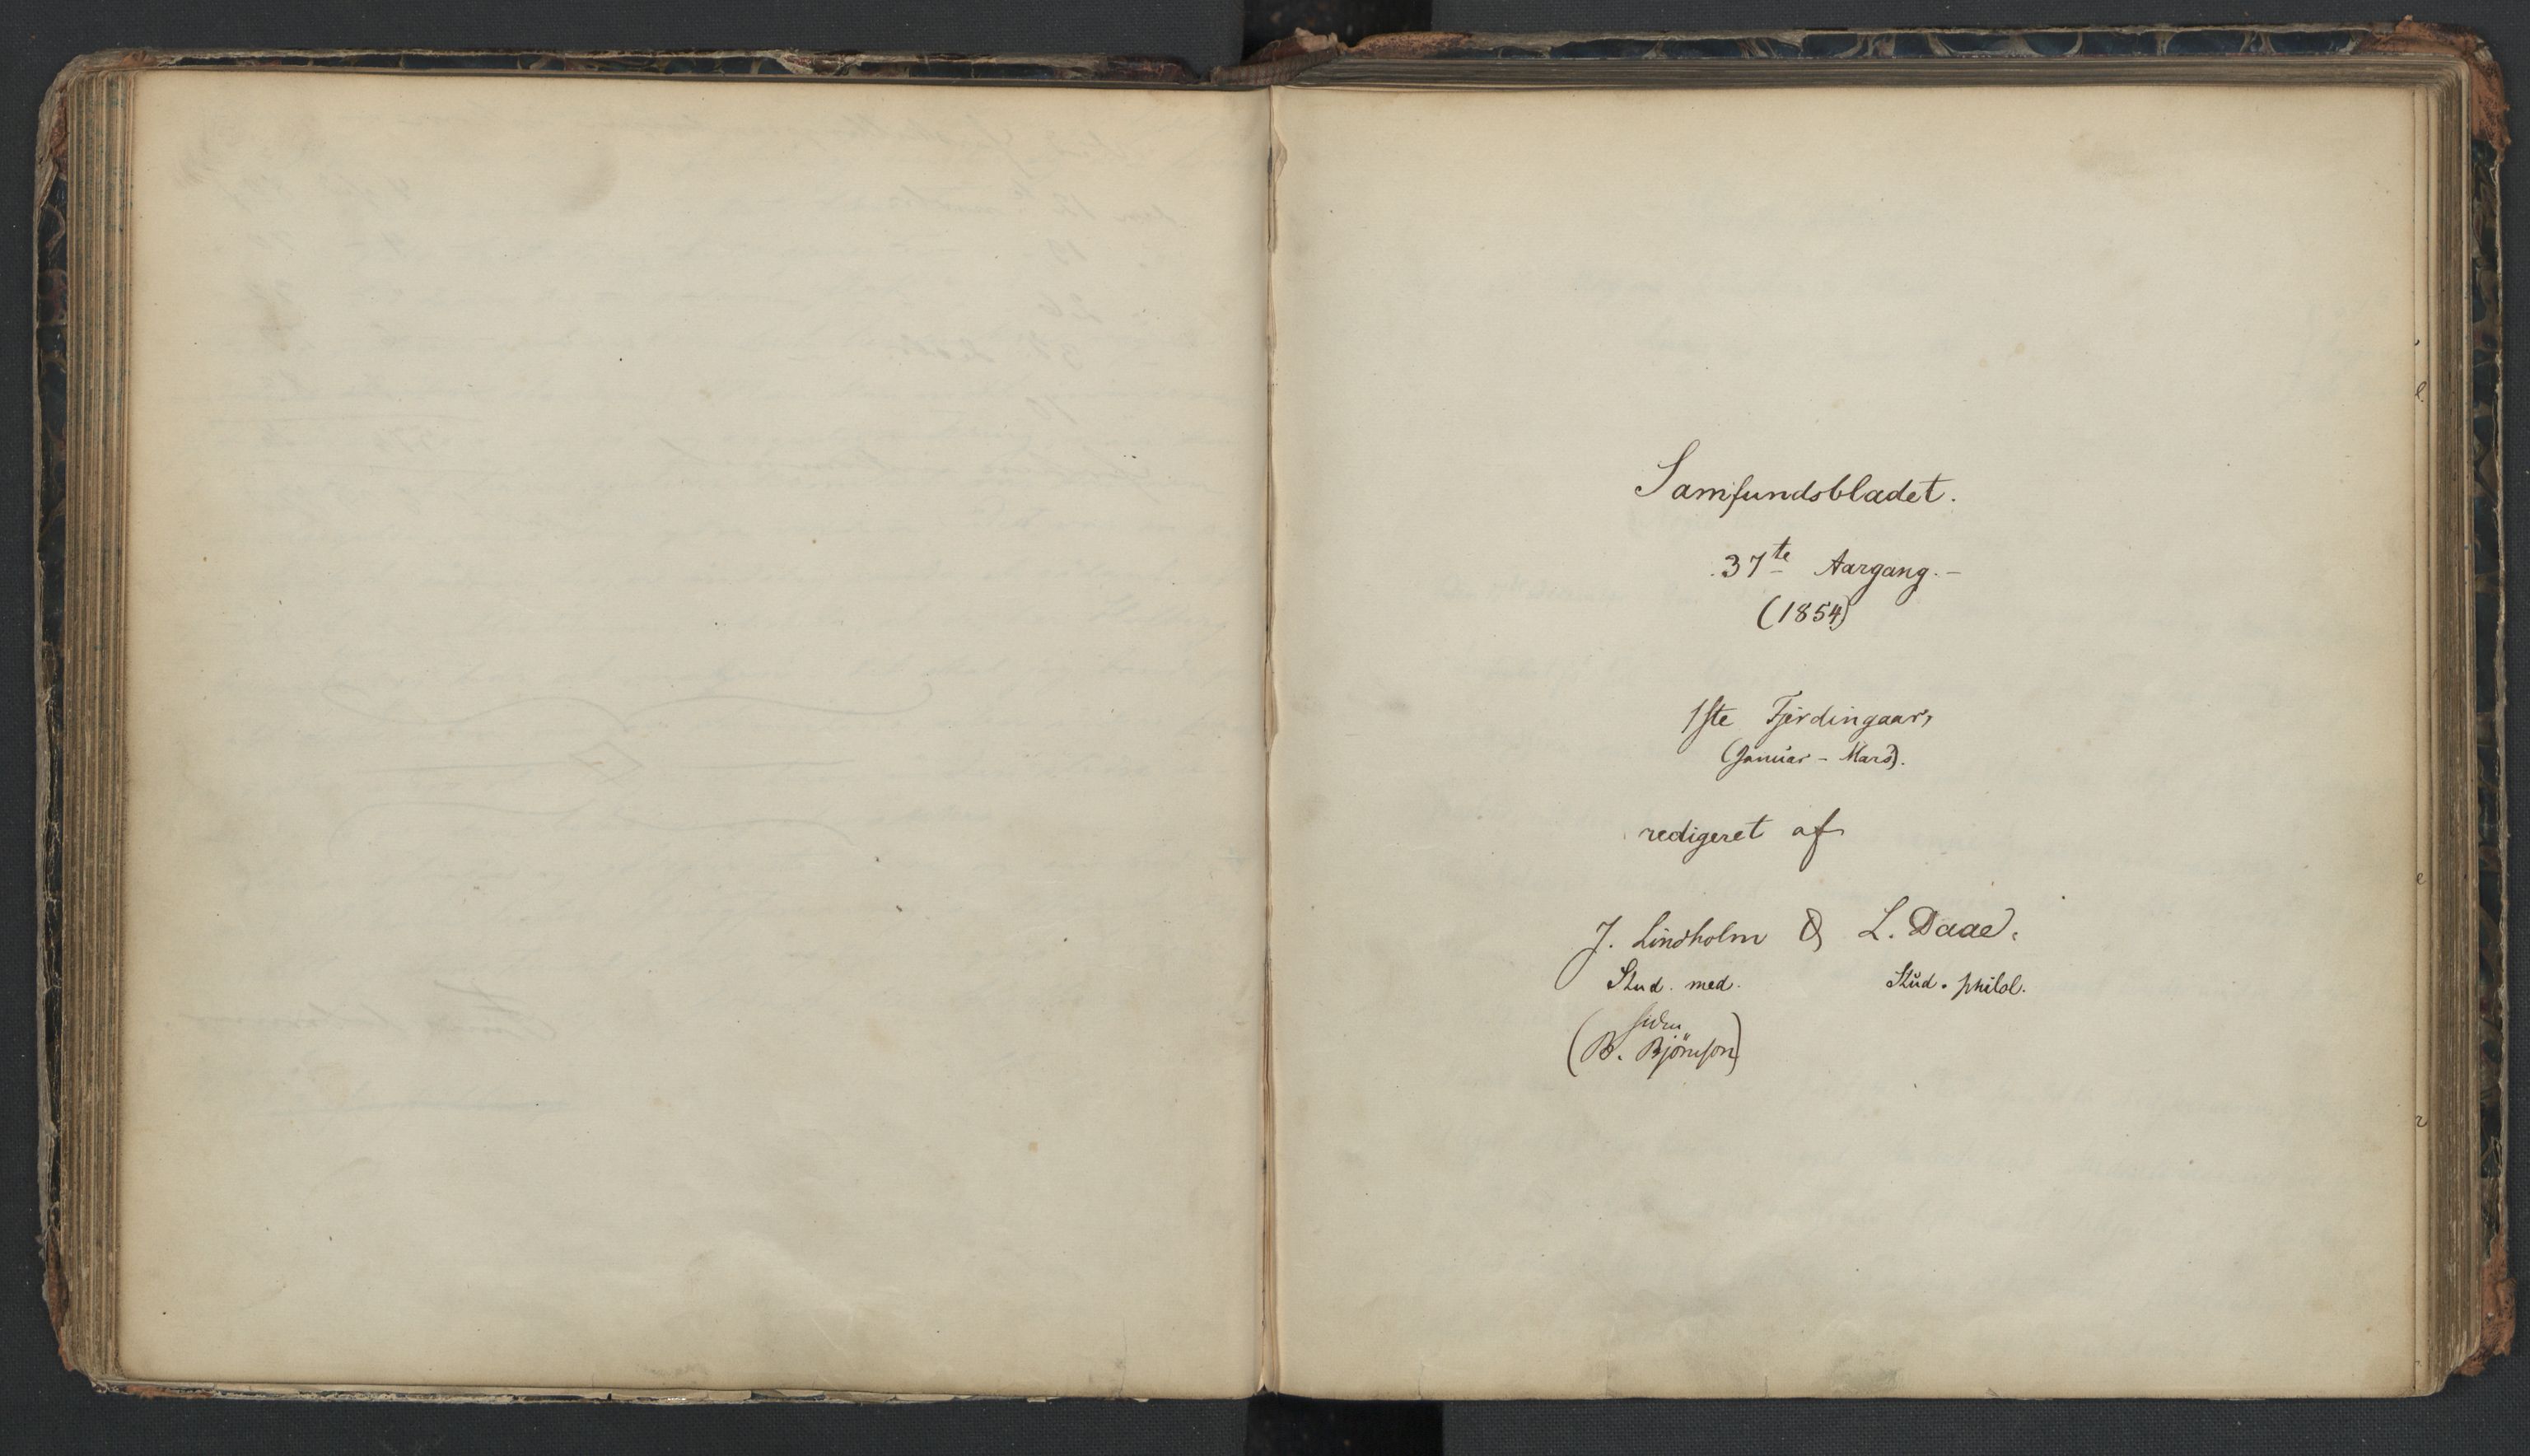 Samfundsbladet.
37te Aargang.-
(1854)
1ste Fjerdingaar,
(Januar - Mars).
redigeret af
J. Lindholm & L. Daae.
Stud. med. Stud. philol.
siden
(B. Bjørnson)